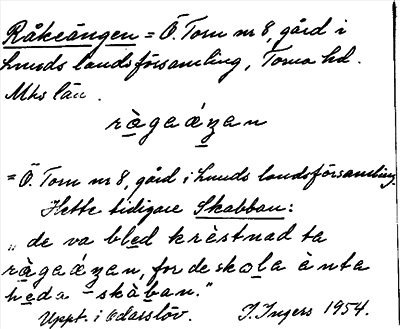 Råkeängen = Ö. Torn nr 8, gård i
Lunds landsförsamling, Torna hd.
Mhs län.
ràgaázan
= Ö. Torn nr 8, gård i Lunds landsförsamling.
Hette tidigare Skabban:
„de va bled krèstnad ta
ràgaázan, for de skola ànta
heda - skàban."
Uppt. i Odarslöv. I. Ingers 1954.